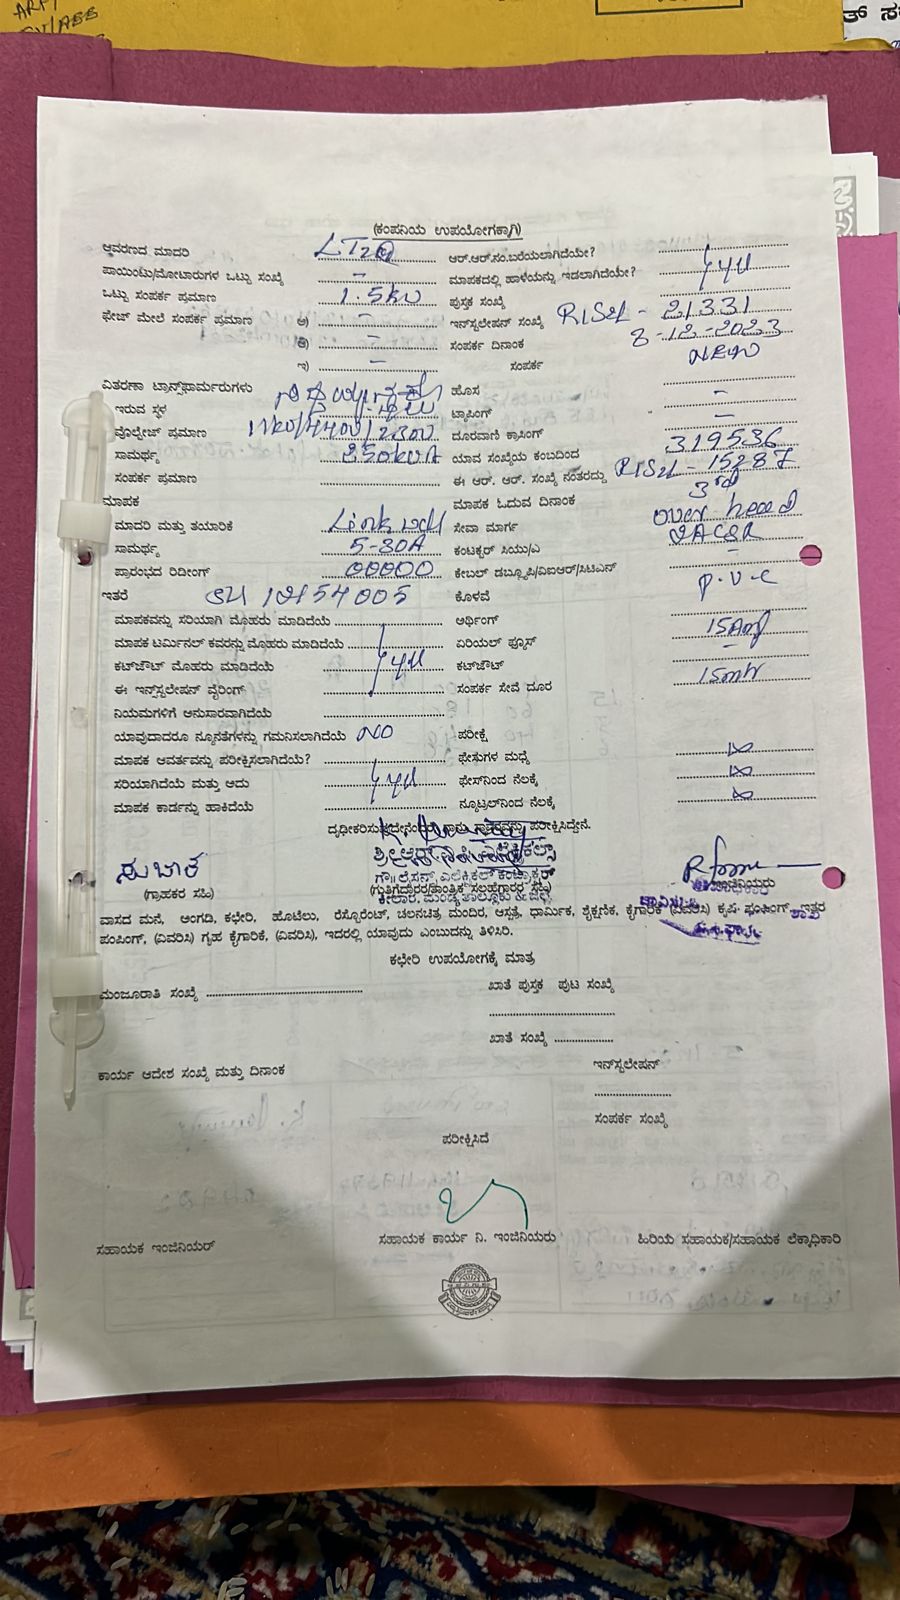 (ಕಂಪನಿಯ ಉಪಯೋಗಕ್ಕಾಗಿ)
ಆವರಣದ ಮಾದರಿ LT2 ಆರ್.ಆರ್.ನಂ.ಬರೆಯಲಾಗಿದೆಯೇ?
ಪಾಯಿಂಟು/ಮೋಟಾರುಗಳ ಒಟ್ಟು ಸಂಖ್ಯೆ – ಮಾಪಕದಲ್ಲಿ ಹಾಳೆಯನ್ನು ಇಡಲಾಗಿದೆಯೇ?
ಒಟ್ಟು ಸಂಪರ್ಕ ಪ್ರಮಾಣ 1.5kw ಪುಸ್ತಕ ಸಂಖ್ಯೆ
ಫೇಜ್ ಮೇಲೆ ಸಂಪರ್ಕ ಪ್ರಮಾಣ ಅ) – ಇನ್‌ಸ್ಟಲೇಷನ್ ಸಂಖ್ಯೆ 21331
ಆ) – ಸಂಪರ್ಕ ದಿನಾಂಕ 8-12-2023
ಇ) – ಸಂಪರ್ಕ NEW
ವಿತರಣಾ ಟ್ರಾನ್ಸ್‌ಫಾರ್ಮರುಗಳು ಹೊಸ
ಇರುವ ಸ್ಥಳ ಟ್ಯಾಪಿಂಗ್ –
ವೊಲ್ಟೇಜ್ ಪ್ರಮಾಣ 11kv/440v/230v ದೂರವಾಣಿ ಕ್ರಾಸಿಂಗ್ –
ಸಾಮರ್ಥ್ಯ 250kVA ಯಾವ ಸಂಖ್ಯೆಯ ಕಂಬದಿಂದ 319536
ಸಂಪರ್ಕ ಪ್ರಮಾಣ ಈ ಆರ್. ಆರ್. ಸಂಖ್ಯೆ ನಂತರದ್ದು 15287
ಮಾಪಕ ಮಾಪಕ ಓದುವ ದಿನಾಂಕ 3rd
ಮಾದರಿ ಮತ್ತು ತಯಾರಿಕೆ Link well ಸೇವಾ ಮಾರ್ಗ over head
ಸಾಮರ್ಥ್ಯ 5-30A ಕಂಟಕ್ಟರ್ ಸಿಯು/ಎ
ಪ್ರಾರಂಭದ ರಿಡೀಂಗ್ 00000 ಕೇಬಲ್ ಡಬ್ಲ್ಯೂಪಿ/ವಿಐಆರ್/ಸಿಟಿಎಸ್ –
ಇತರೆ 12154005 ಕೊಳವೆ P.V.C
ಮಾಪಕವನ್ನು ಸರಿಯಾಗಿ ಮೊಹರು ಮಾಡಿದೆಯೆ ಅರ್ಥಿಂಗ್
ಮಾಪಕ ಟರ್ಮಿನಲ್ ಕವರನ್ನು ಮೊಹರು ಮಾಡಿದೆಯೆ ಏರಿಯಲ್ ಫ್ಯೂಸ್ 15Amp
ಕಟ್‌ಜೌಟ್ ಮೊಹರು ಮಾಡಿದೆಯೆ ಕಟ್‌ಜೌಟ್ –
ಈ ಇನ್‌ಸ್ಟಲೇಷನ್ ವೈರಿಂಗ್ ಸಂಪರ್ಕ ಸೇವೆ ದೂರ 15mtr
ನಿಯಮಗಳಿಗೆ ಅನುಸಾರವಾಗಿದೆಯೆ
ಯಾವುದಾದರೂ ನ್ಯೂನತೆಗಳನ್ನು ಗಮನಿಸಲಾಗಿದೆಯೆ NO ಪರೀಕ್ಷೆ
ಮಾಪಕ ಆವರ್ತವನ್ನು ಪರೀಕ್ಷಿಸಲಾಗಿದೆಯೇ? ಫೇಸುಗಳ ಮಧ್ಯೆ
ಸರಿಯಾಗಿದೆಯೆ ಮತ್ತು ಅದು ಫೇಸ್‌ನಿಂದ ನೆಲಕ್ಕೆ
ಮಾಪಕ ಕಾರ್ಡನ್ನು ಹಾಕಿದೆಯೆ ನ್ಯೂಟ್ರಲ್‌ನಿಂದ ನೆಲಕ್ಕೆ
ಪರೀಕ್ಷಿಸಿದ್ದೇನೆ.
ಸುಜಾತ
(ಗ್ರಾಹಕರ ಸಹಿ)
ವಾಸದ ಮನೆ, ಅಂಗಡಿ, ಕಛೇರಿ, ಹೊಟೆಲು, ರೆಸ್ಟೊರೆಂಟ್, ಚಲನಚಿತ್ರ ಮಂದಿರ, ಆಸ್ಪತ್ರೆ, ಧಾರ್ಮಿಕ, ಶೈಕ್ಷಣಿಕ, ಕೈಗಾರಿಕೆ (ವಿವರಿಸಿ) ಕೃಷಿ ಪಂಪಿಂಗ್, ಇತ್ತರ
ಪಂಪಿಂಗ್, (ವಿವರಿಸಿ) ಗೃಹ ಕೈಗಾರಿಕೆ, (ವಿವರಿಸಿ), ಇದರಲ್ಲಿ ಯಾವುದು ಎಂಬುದನ್ನು ತಿಳಿಸಿರಿ.
ಕಛೇರಿ ಉಪಯೋಗಕ್ಕೆ ಮಾತ್ರ
ಮಂಜೂರಾತಿ ಸಂಖ್ಯೆ ಖಾತೆ ಪುಸ್ತಕ ಪುಟ ಸಂಖ್ಯೆ
ಖಾತೆ ಸಂಖ್ಯೆ
ಕಾರ್ಯ ಆದೇಶ ಸಂಖ್ಯೆ ಮತ್ತು ದಿನಾಂಕ ಇನ್‌ಸ್ಟಲೇಷನ್
ಸಂಪರ್ಕ ಸಂಖ್ಯೆ
ಪರೀಕ್ಷಿಸಿದೆ
ಸಹಾಯಕ ಇಂಜಿನಿಯರ್ ಸಹಾಯಕ ಕಾರ್ಯ ನಿ. ಇಂಜಿನಿಯರು ಹಿರಿಯ ಸಹಾಯಕ/ಸಹಾಯಕ ಲೆಕ್ಕಾಧಿಕಾರಿ